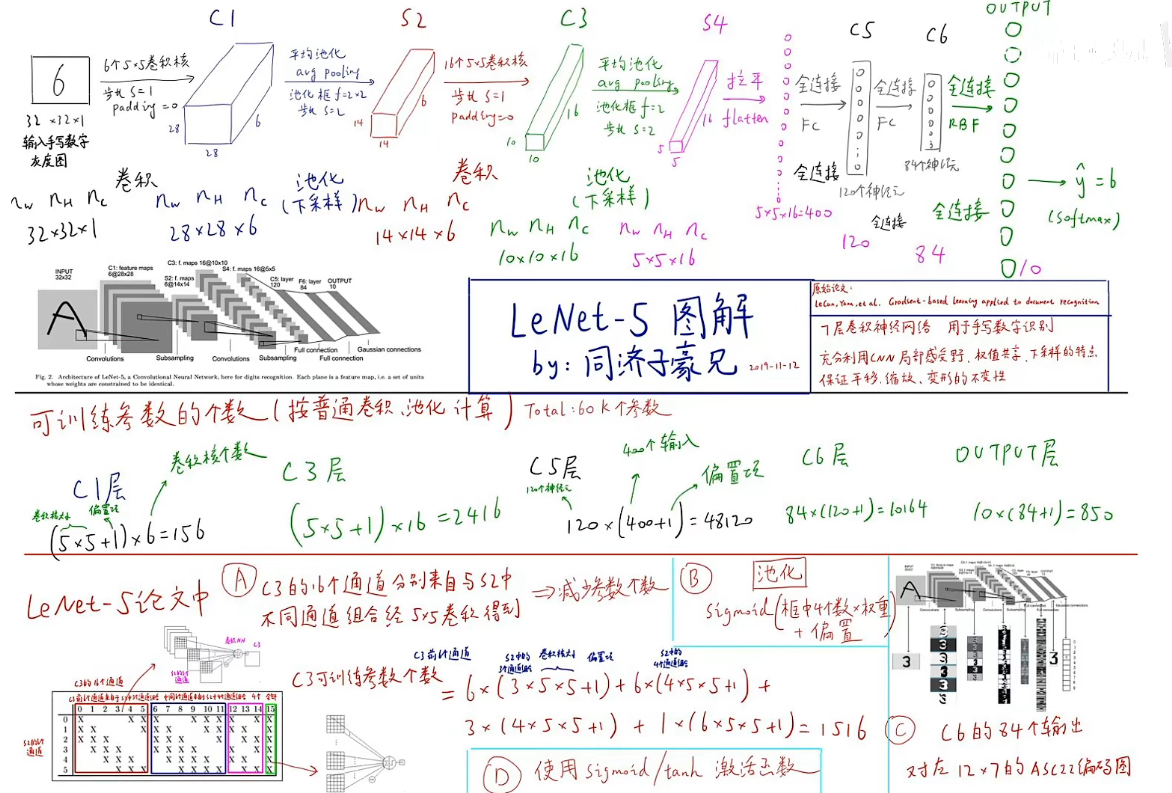 C1
S2
C3
S4
C5
C6
OUTPUT
6
6个5×5卷积核
步长 S=1
padding=0
28
28
6
平均池化
avg pooling
池化框 f=2×2
步长 S=2
14
14
6
16个5×5卷积核
步长 S=1
padding=0
10
10
16
平均池化
avg pooling
池化框 f=2
步长 S=2
5
5
16
拉平
flatten
5×5×16=400
全连接
FC
全连接
120个神经元
全连接
FC
84个神经元
全连接
RBF
ŷ=6
(softmax)
32×32×1
输入手写数字
灰度图
卷积
池化
(下采样)
卷积
池化
(下采样)
全连接
全连接
nw nH nc
32×32×1
nw nH nc
28×28×6
nw nH nc
14×14×6
nw nH nc
10×10×16
nw nH nc
5×5×16
120
84
10
INPUT
32x32
C1: feature maps
6@28x28
S2: f. maps
6@14x14
C3: f. maps 16@10x10
S4: f. maps 16@5x5
C5: layer
120
F6: layer
84
OUTPUT
10
A
Convolutions
Subsampling
Convolutions
Subsampling
Full connection
Full connection
Gaussian connections
Fig. 2. Architecture of LeNet-5, a Convolutional Neural Network, here for digits recognition. Each plane is a feature map, i.e. a set of units
whose weights are constrained to be identical.
LeNet-5 图解
by: 同济子豪兄
2019-11-12
原始论文:
LeCun, Yann, et al. Gradient-based learning applied to document recognition
7层卷积神经网络 用于手写数字识别
充分利用CNN 局部感受野、权值共享、下采样的特点
保证平移、缩放、变形的不变性
可训练参数的个数(按普通卷积、池化计算) Total:60k个参数
C1层
卷积核个数
卷积核大小
偏置项
(5×5+1)×6=156
C3层
(5×5+1)×16=2416
C5层
120个神经元
400个输入
偏置项
120×(400+1)=48120
C6层
84×(120+1)=10164
OUTPUT层
10×(84+1)=850
LeNet-5论文中
A
C3的16个通道分别来自与S2中
不同通道组合经5×5卷积得到
⇒减少参数个数
B
池化
sigmoid(框中4个数×权重
+偏置)
C3可训练参数个数
卷积核大小
偏置项
=6×(3×5×5+1)+6×(4×5×5+1)+
3×(4×5×5+1)+1×(6×5×5+1)=1516
C3的16个通道
0 1 2 3 4 5 6 7 8 9 10 11 12 13 14 15
0
1
2
3
4
5
D
使用 sigmoid/tanh 激活函数
A
3
3
C
C6的84个输出
对应12×7的ASCII编码图